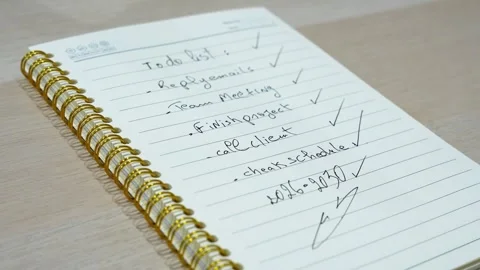 To do list : ✓
. Reply emails ✓
. Team Meeting ✓
. Finish project ✓
. call client ✓
. cheak schedule ✓
2026-2030 ✓